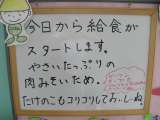 今日から給食が
スタートします。
やさいたっぷりの
肉みそいため。
たけのこもコリコリしておいしいね。